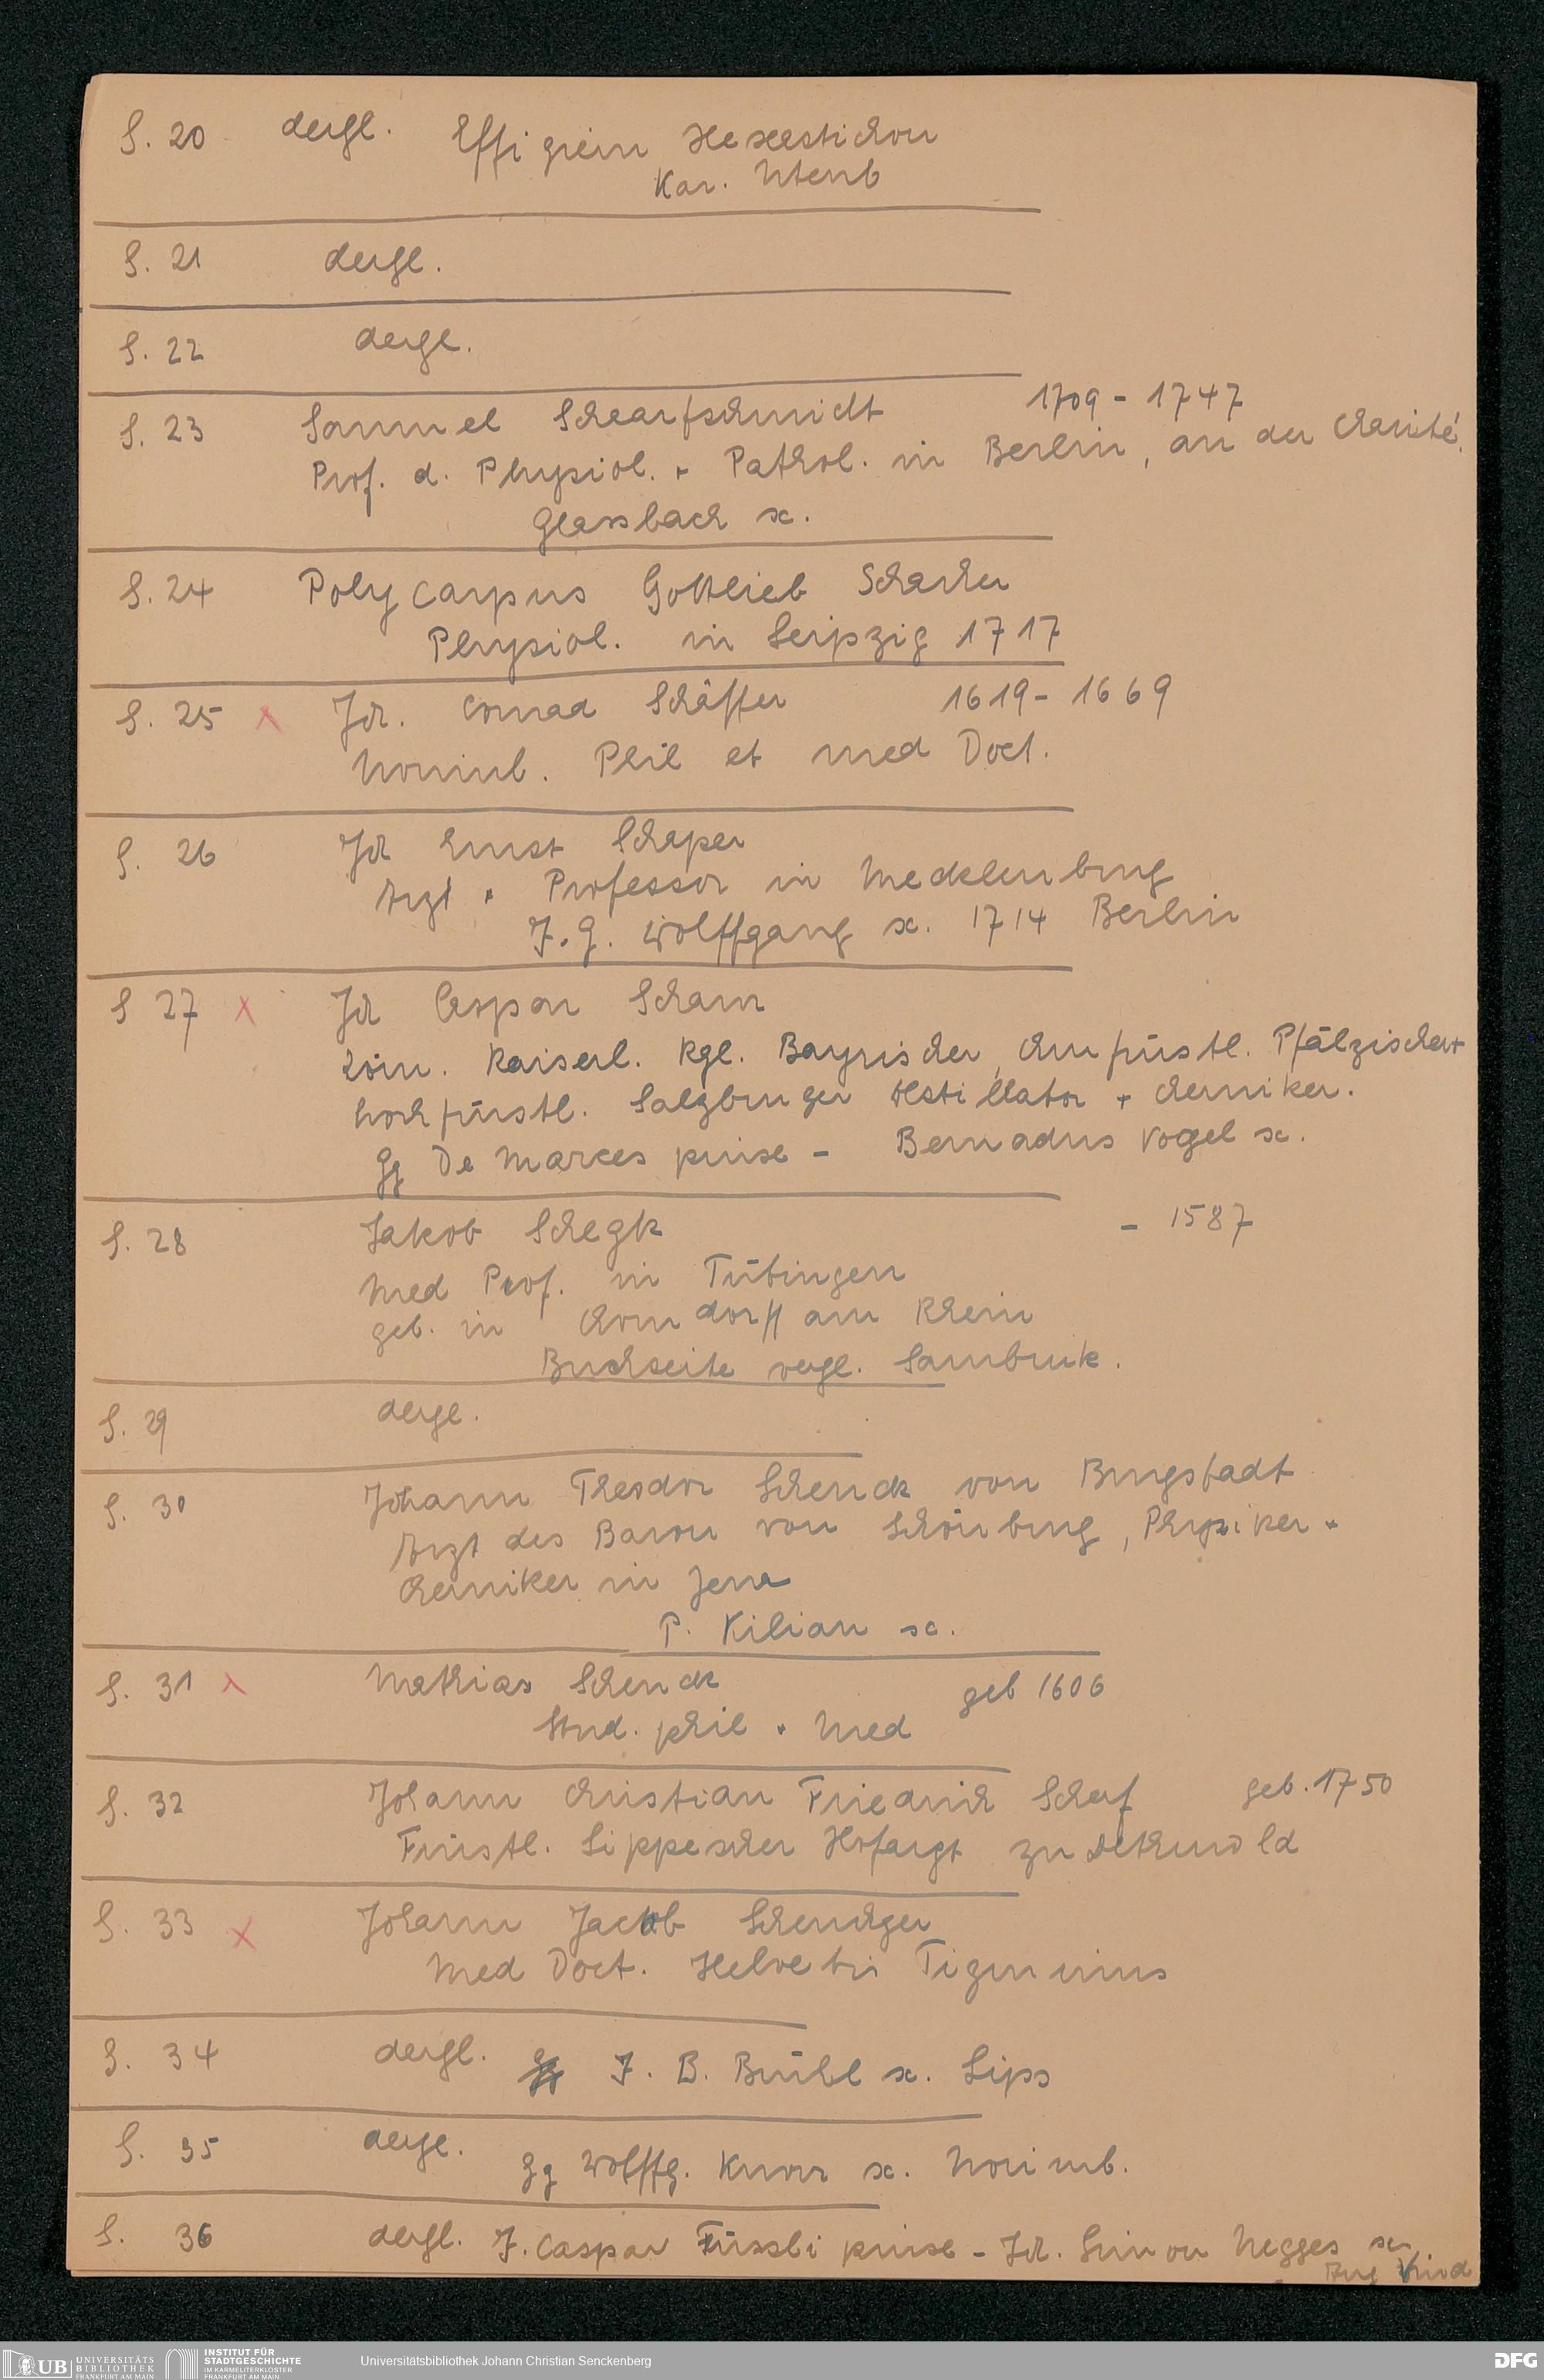 S. 20 dergl. Effigiem Hexastichon
Kar. Utenb
S. 21 dergl.
S. 22 dergl.
S. 23 Samuel Schaarfschmidt 1709 - 1747
Prof. d. Physiol. + Pathol. in Berlin, an der Charité.
Glassbach sc.
S. 24 Polycarpus Gottlieb Schacher
Physiol. in Leipzig 1717
S. 25 x Joh. Conrad Schäffer 1619 - 1669
Norimb. Phil et med Doct.
S. 26 Joh Ernst Schaper
Arzt + Professor in Mecklenburg
J. G. Wolffgang sc. 1714 Berlin
S 27 x Joh Caspar Scham
Röm. Kaiserl. Kgl. Bayrischer, churfürstl. Pfälzischer +
hochfürstl. Salzburger Destillator + Chemiker.
Gg De Marees pinse - Bernadus Vogel sc.
S. 28 Jakob Schegk - 1587
Med Prof. in Tübingen
geb. in Chorndorff am Rhein
Buchseite vergl. Sambuik.
S. 29 dergl.
S. 30 Johann Theodor Schenck von Burgstadt
Arzt des Baron von Schönburg, Physiker +
Chemiker in Jena
P. Kilian sc.
S. 31 x Mathias Schenck geb 1606
Stud. phil + Med
S. 32 Johann Christian Friedrich Scherf geb. 1750
Fürstl. Lippescher Hofarzt zu Dethmold
S. 33 x Johann Jackob Scheuchzer
Med Doct. Helvetii Tigurinus
S. 34 dergl. J. B. Brühl sc. Lips
S. 35 dergl. Gg Wolffg. Knorr sc. Norimb.
S. 36 dergl. J. Caspar Füssli pinse - Joh. Simon Negges sc
Aug Vind
UB UNIVERSITÄTS
BIBLIOTHEK
FRANKFURT AM MAIN
INSTITUT FÜR
STADTGESCHICHTE
IM KARMELITERKLOSTER
FRANKFURT AM MAIN
Universitätsbibliothek Johann Christian Senckenberg
DFG